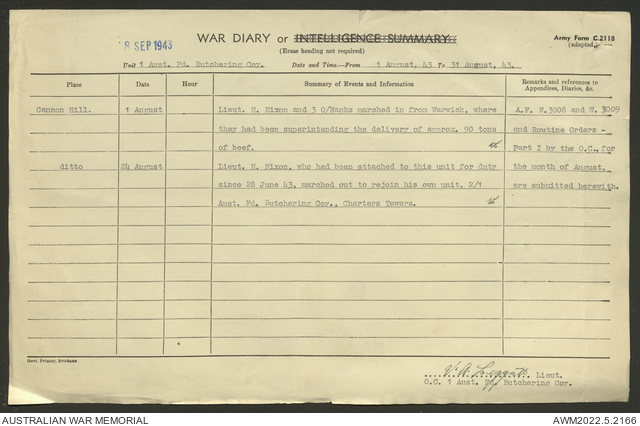 8 SEP 1943
WAR DIARY or INTELLIGENCE SUMMARY
Army Form C.2118
(adapted)
(Erase heading not required)
Unit 1 Aust. Fd. Butchering Coy. Date and Time.—From 1 August, 43 To 31 August, 43.
Place Date Hour Summary of Events and Information Remarks and references to
Appendices, Diaries, &c.
Cannon Hill. 1 August Lieut. H. Nixon and 3 O/Ranks marched in from Warwick, where A.F. W.3008 and W. 3009
they had been superintending the delivery of approx. 90 tons and Routine Orders -
of beef. Part I by the O.C., for
ditto 24 August Lieut. H. Nixon, who had been attached to this unit for duty the month of August,
since 28 June 43, marched out to rejoin his own unit, 2/1 are submitted herewith.
Aust. Fd. Butchering Coy., Charters Towers.
Govt. Printer, Brisbane
Lieut.
O.C. 1 Aust. Fd. Butchering Coy.
AUSTRALIAN WAR MEMORIAL AWM2022.5.2166